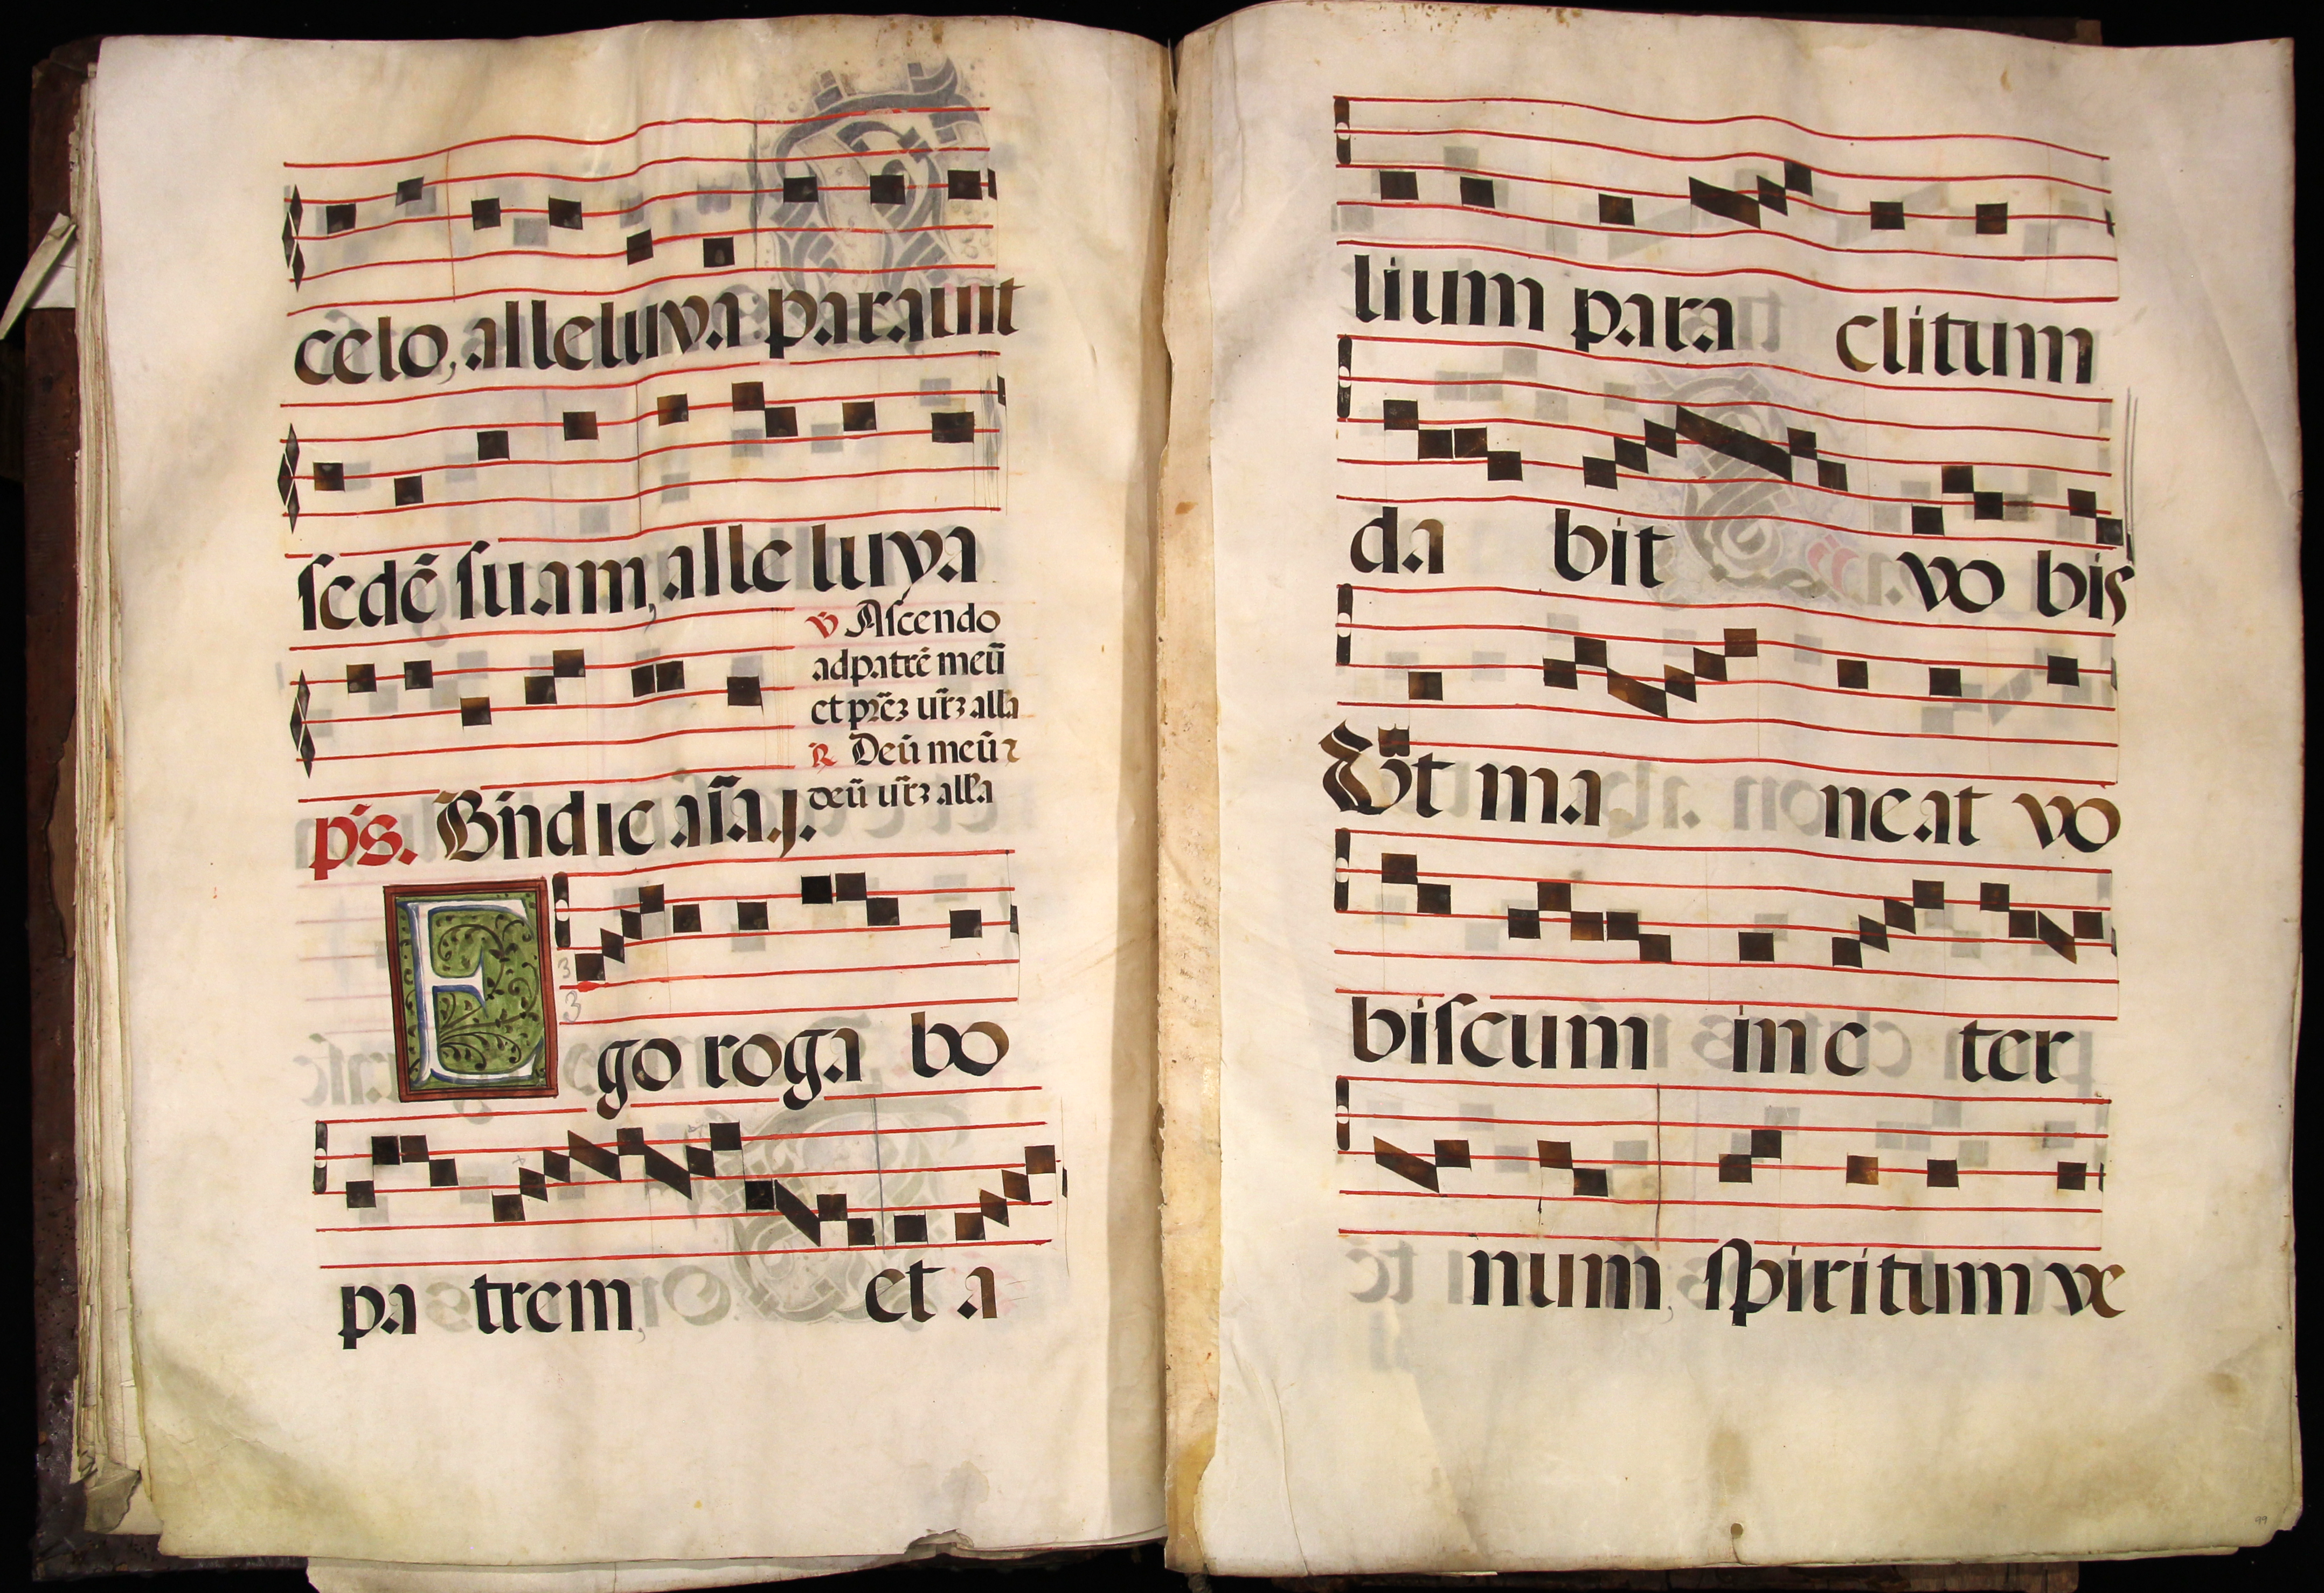 celo, alleluya parauit
sedē suam, alleluya
℣ Ascendo
ad patrē meū
et
alla
℟ Deū meū ⁊
deū
alla
ps. Bn̄dic aīa. j.
Ego roga bo
pa trem, et a
lium para clitum
da bit vo bis
Vt ma neat vo
biscum in e ter
num, spiritum ve
99